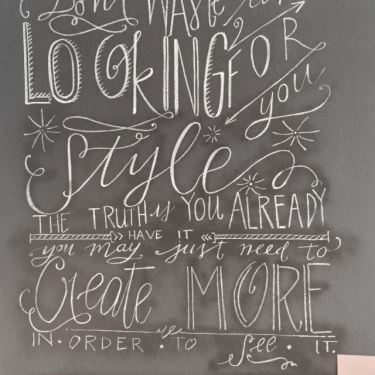 Don't WASTE
LOOKING FOR
you
Style
THE TRUTH is YOU ALREADY
HAVE IT
you may just need to
Create MORE
IN · ORDER · TO · See · IT.